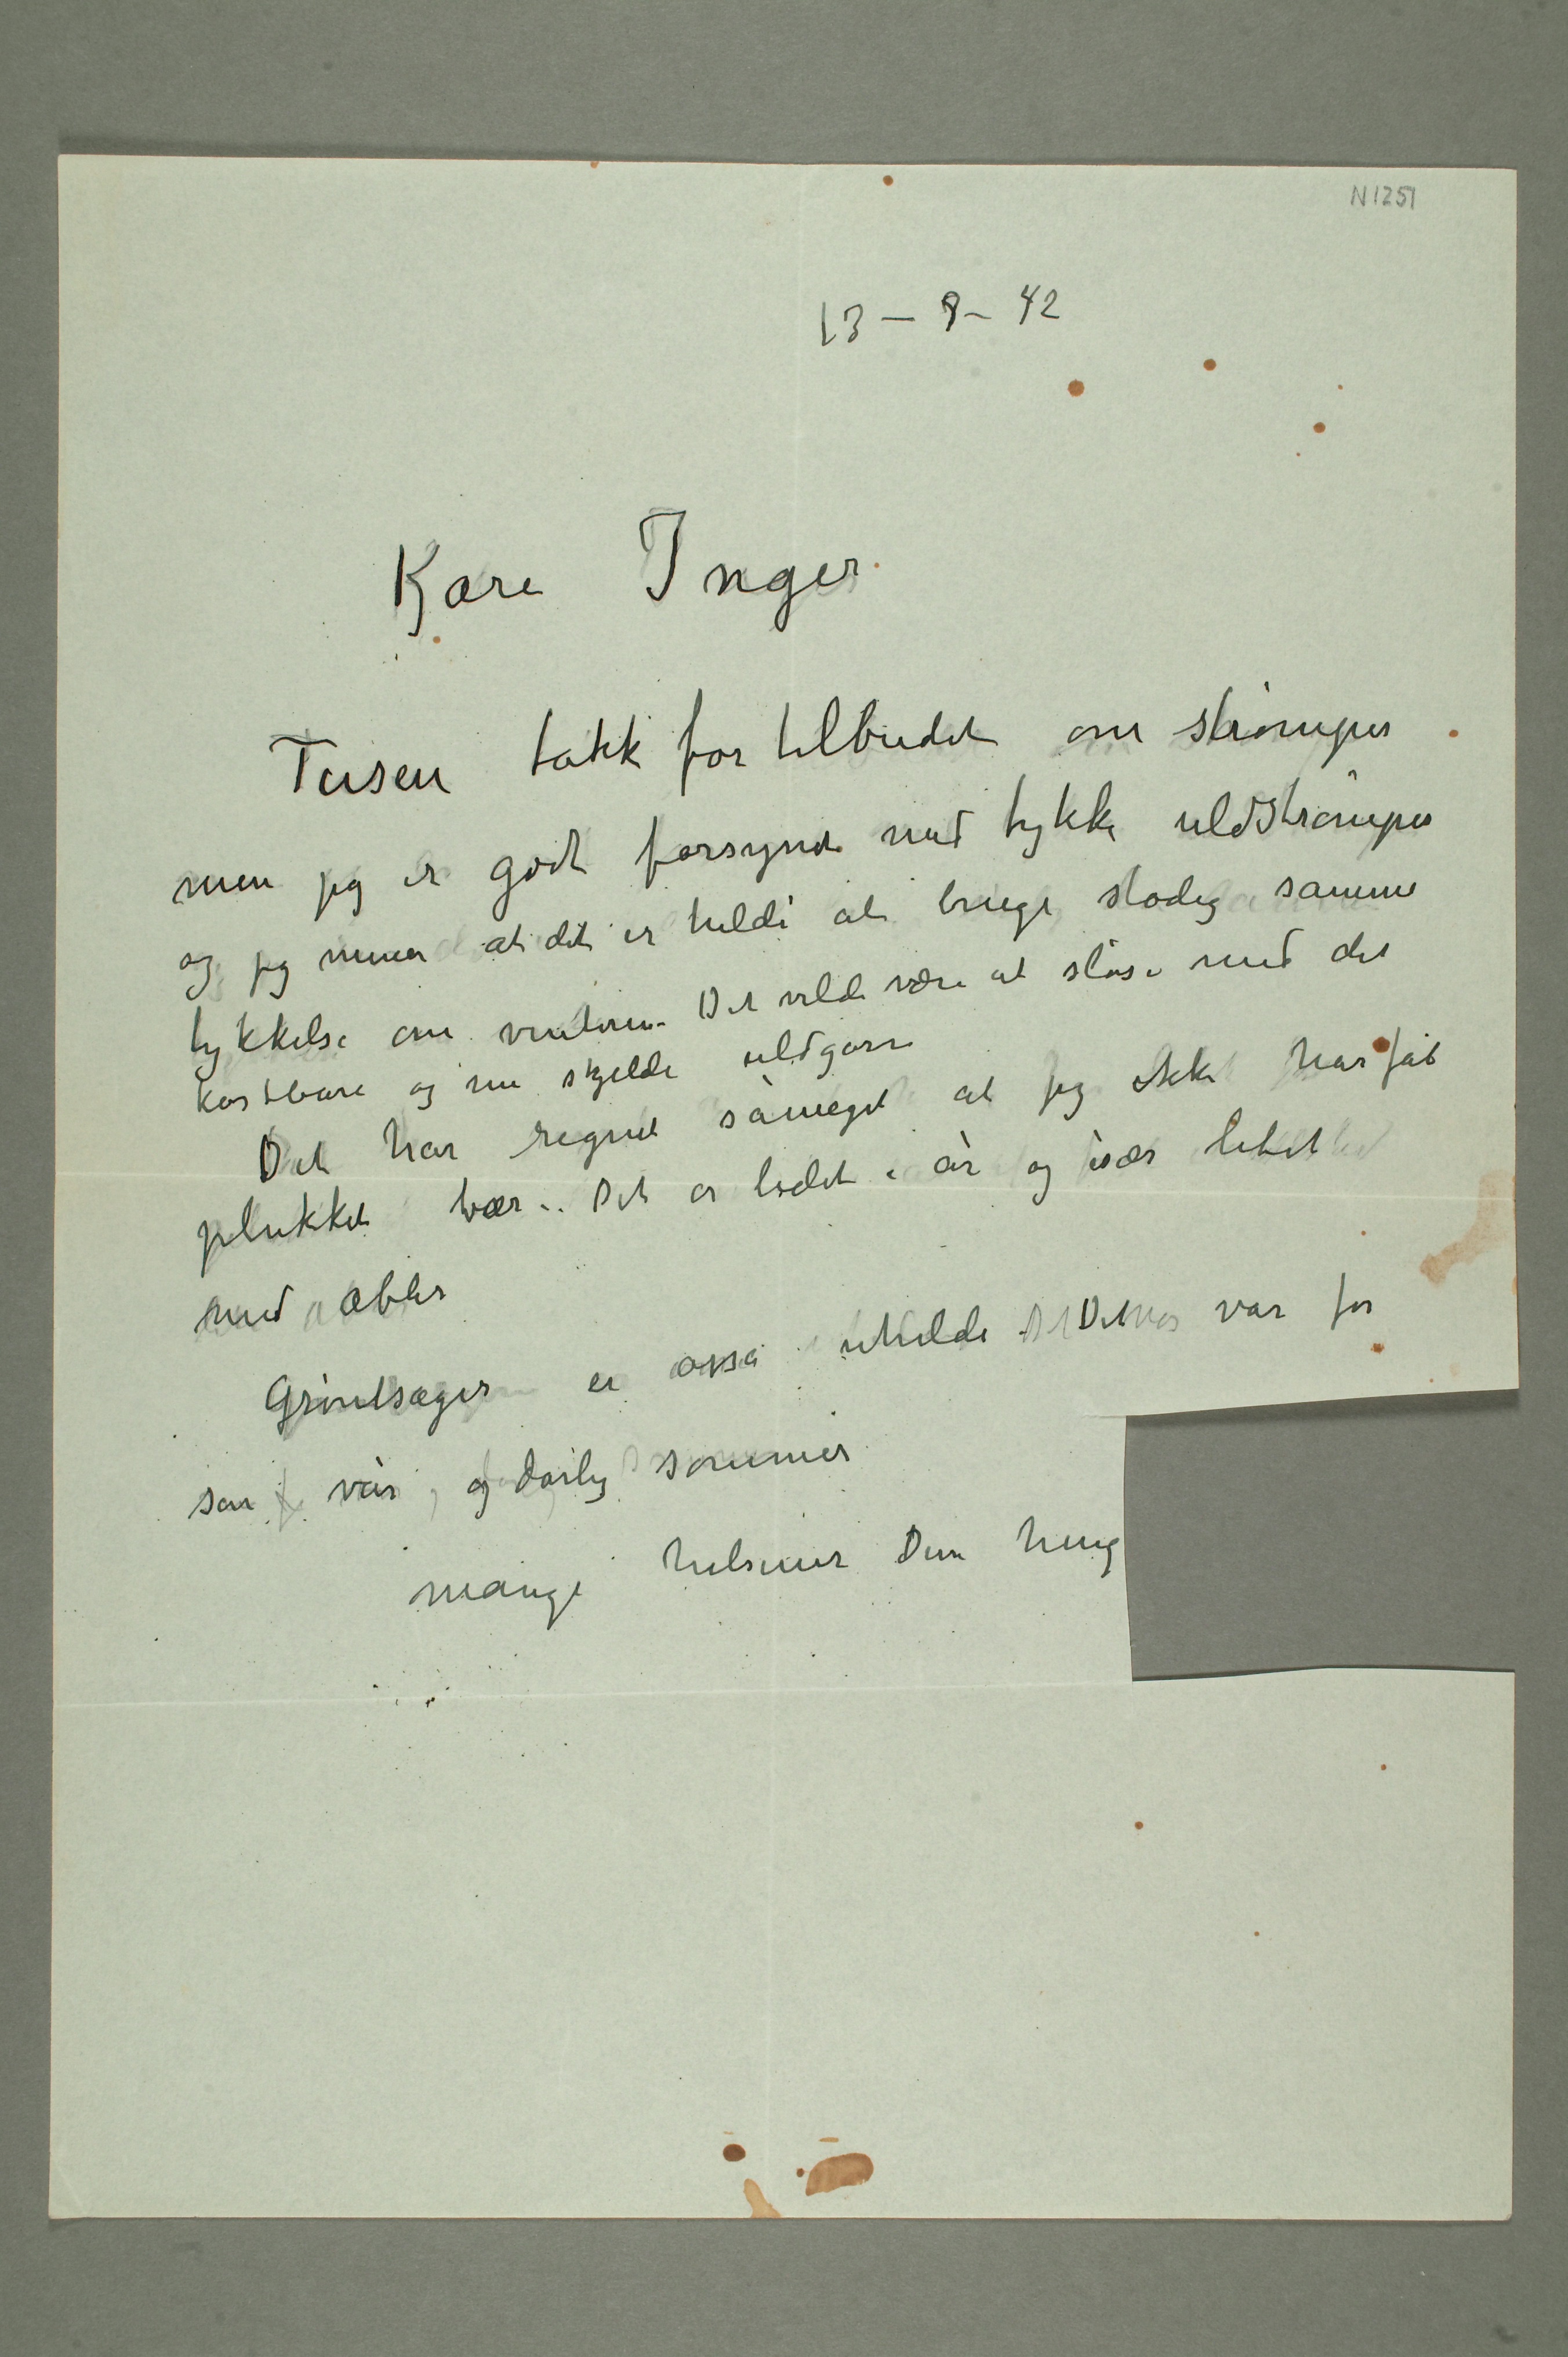 N 1251
13 – 9 – 42
Kære Inger
Tusen takk for tilbudet om strømper
men jeg er godt forsynet med tykke uldstrømper
og jeg mener at det er heldi at bruge stadig samme
tykkelse om vinteren. Det vilde være at sløse med det
kostbare og nu sjeldne uldgarn
Det har regnet såmeget at jeg ikke har fåt
plukket bær. Det er lidet i år og især litet
med æbler
Grøntsager er også uheldi Det var for
sen vår og dårlig sommer
mange hilsener Din heng